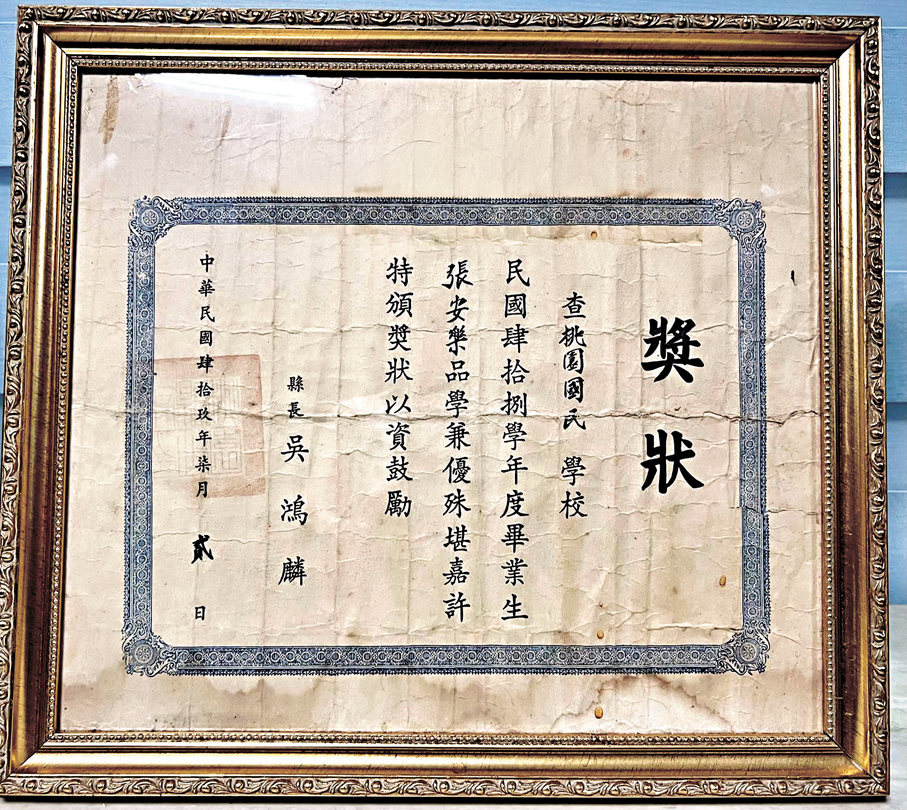 獎狀
查桃園國民 學校
民國肆拾捌學年度畢業生
張安樂品學兼優殊堪嘉許
特頒獎狀以資鼓勵
縣長 吳鴻麟
中華民國肆拾玖年柒月貳日